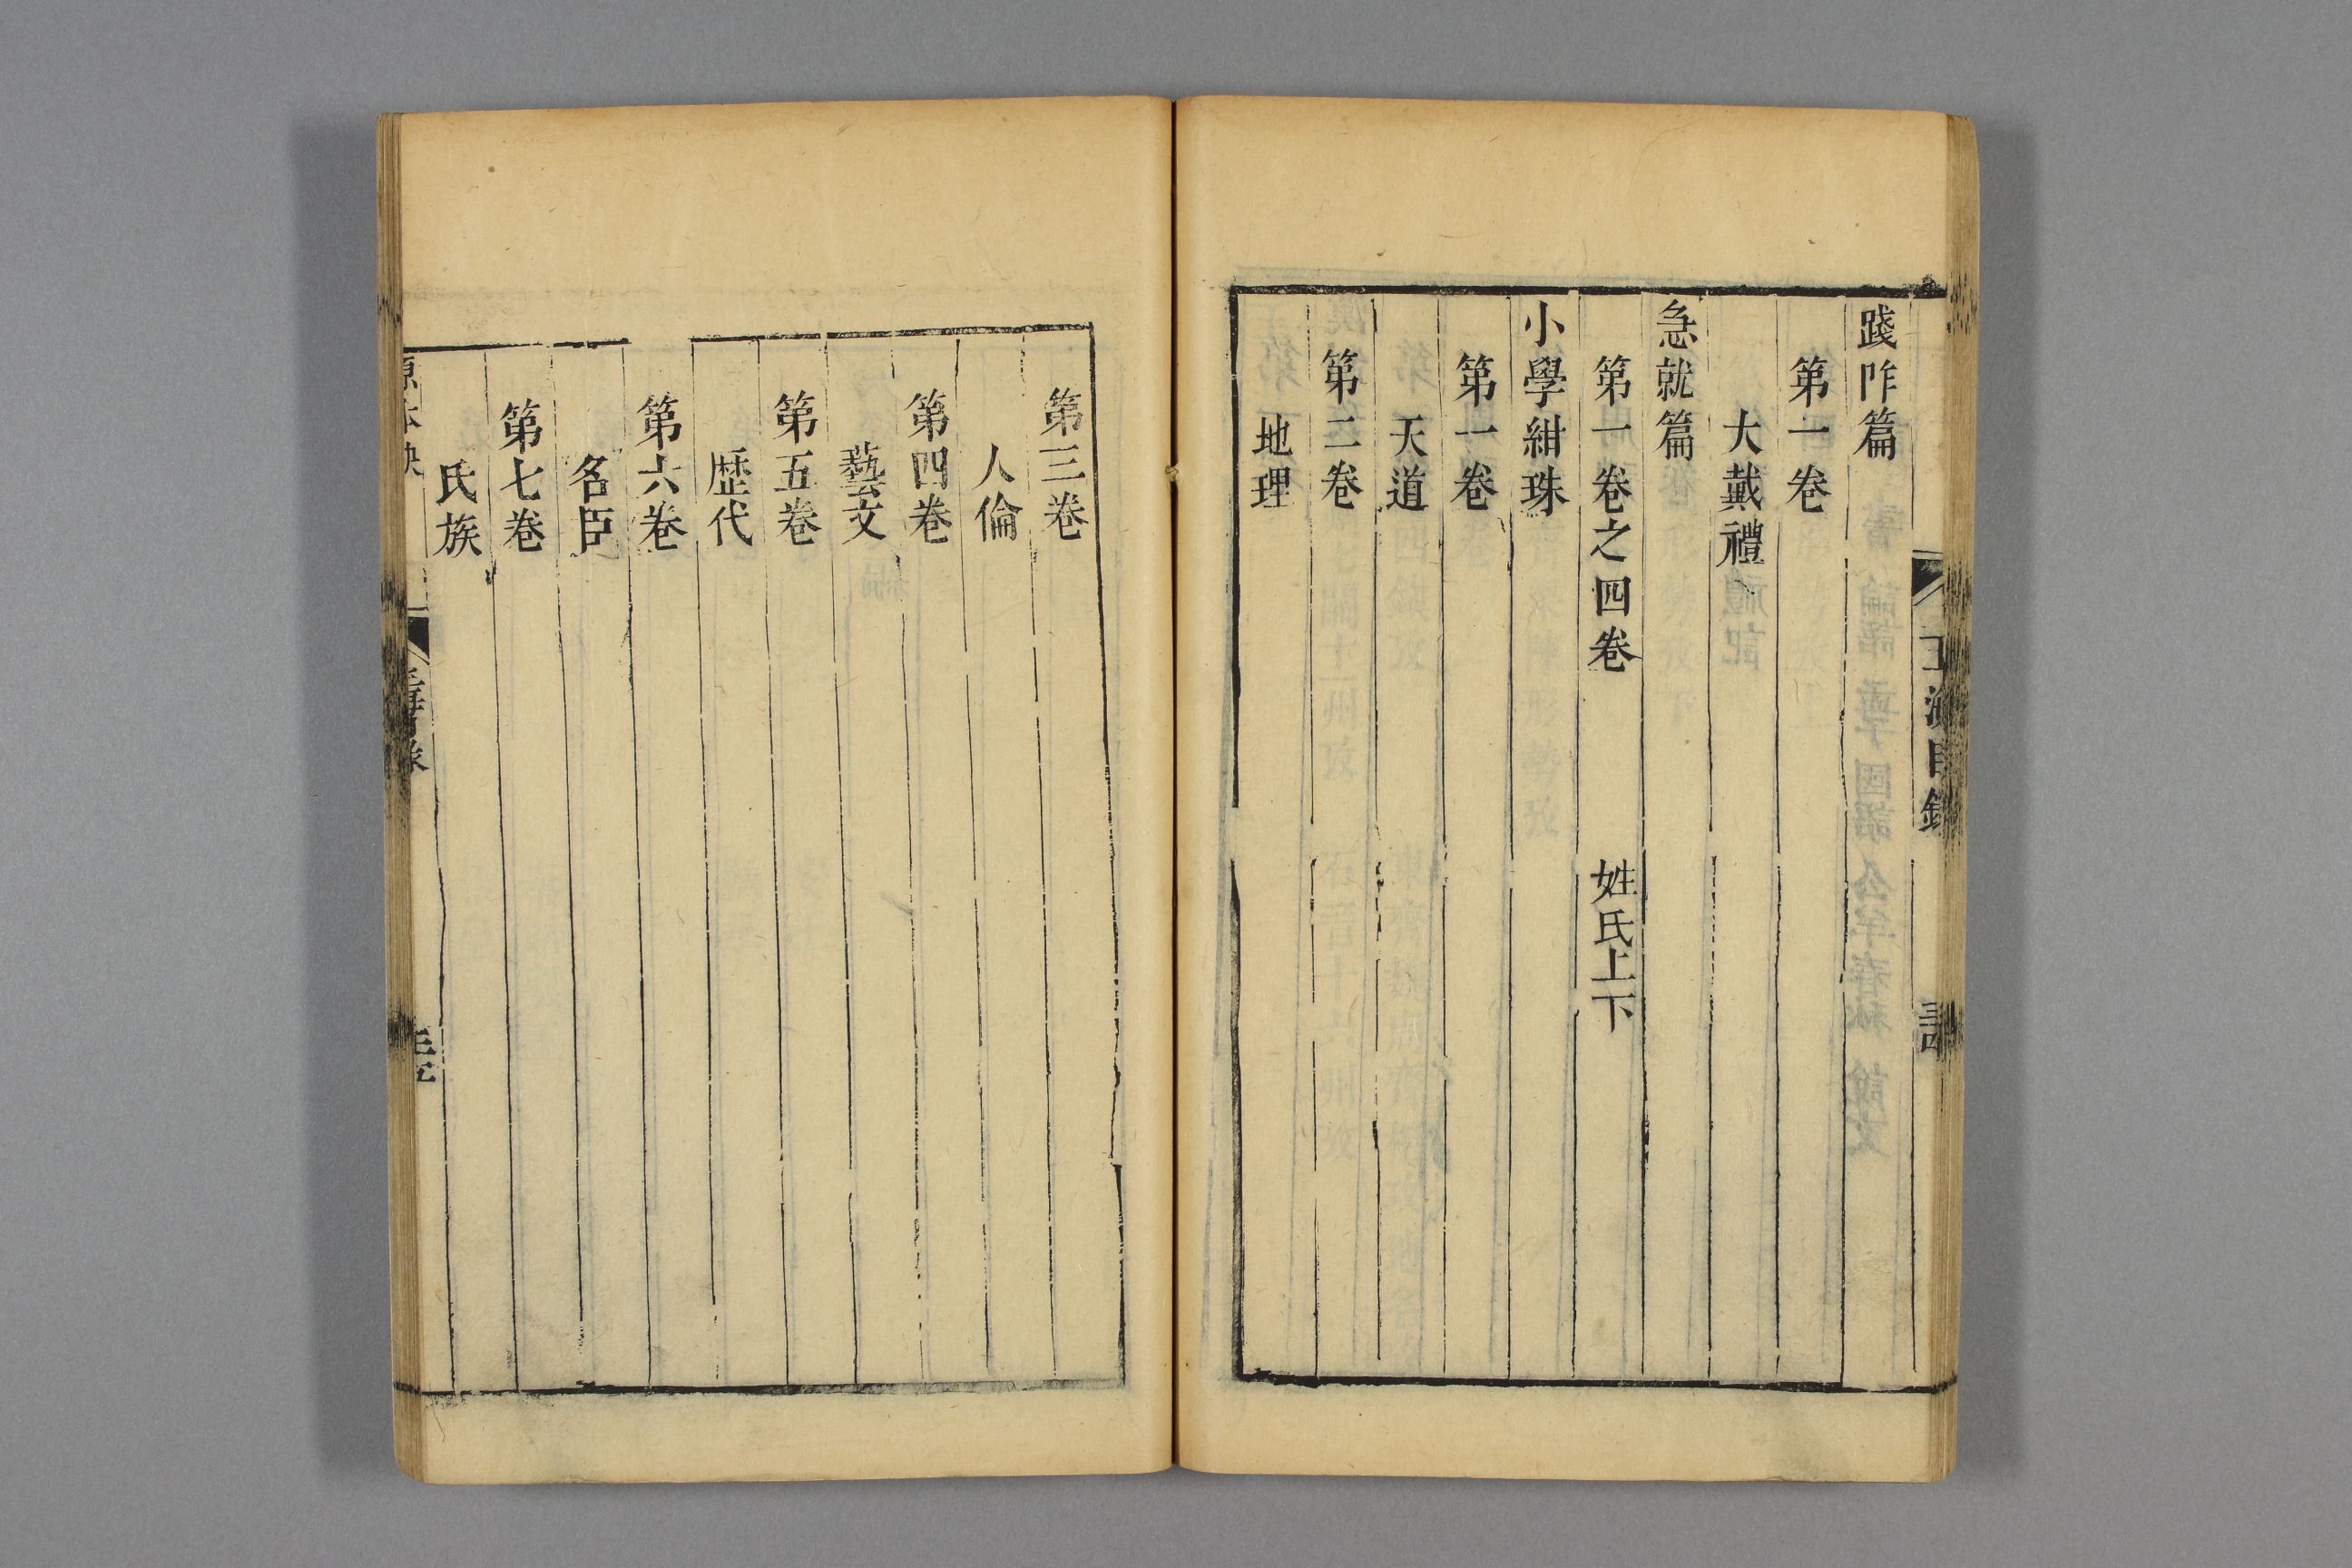 踐阼篇
第一卷
大戴禮
急就篇
第一卷之四卷 姓氏上下
小學紺珠
第一卷
天道
第二卷
地理
第三卷
人倫
第四卷
藝文
第五卷
歷代
第六卷
名臣
第七卷
氏族